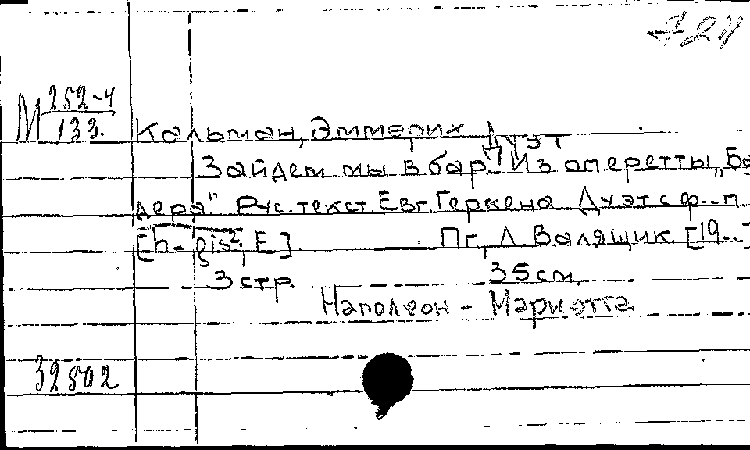 724
М 252-4
133.
Кальман, Эммерих Дуэт
Зайдем мы в бар. Из оперетты „Ба
дера" Рус. текст Евг. Геркена Дуэт с ф.-п.
[h-gis², E] Пг, Л Валящик [19..]
3 стр. 35 см.
Наполеон - Мариэтта
32802